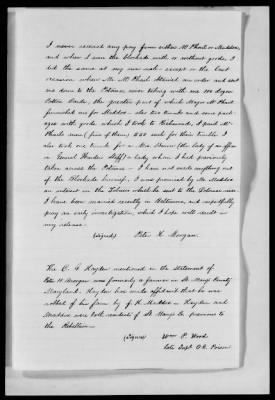 I never received any pay from either McPhail or Maddox,
and when I ran the blockade with or without goods, I
did the same at my own risk — except on the last
occasion when Mr. McPhail obtained an order and sent
me down to the Potomac river taking with me 100 dozen
Cotton Cards, the greater part of which Major McPhail
furnished me for Maddox — also two trunks and some pack-
ages with goods which I took to Richmond. I paid Mc-
Phails men (five of them) $50 each for their trouble. I
also took one trunk for a Mrs (the lady of an officer
on General Winders Staff) a lady whom I had previously
taken across the Potomac — I have not made anything out
of the Blockade business, I was promised by Mr. Maddox
an interest in the Tobacco which he sent to the Potomac river
I have been married recently in Baltimore, and respectfully
pray an early investigation, which I hope will result in
my release —
(Signed) Peter H. Morgan.
The C. G. Hayden mentioned in the Statement of
Peter H. Morgan was formerly a farmer in St Marys County
Maryland. Hayden has made affidavit that he was
robbed of his farm by J. H. Maddox — Hayden and
Maddox were both residents of St Marys Co previous to
the Rebellion —
(Signed) Wm P. Wood
late Supt. O.C. Prison